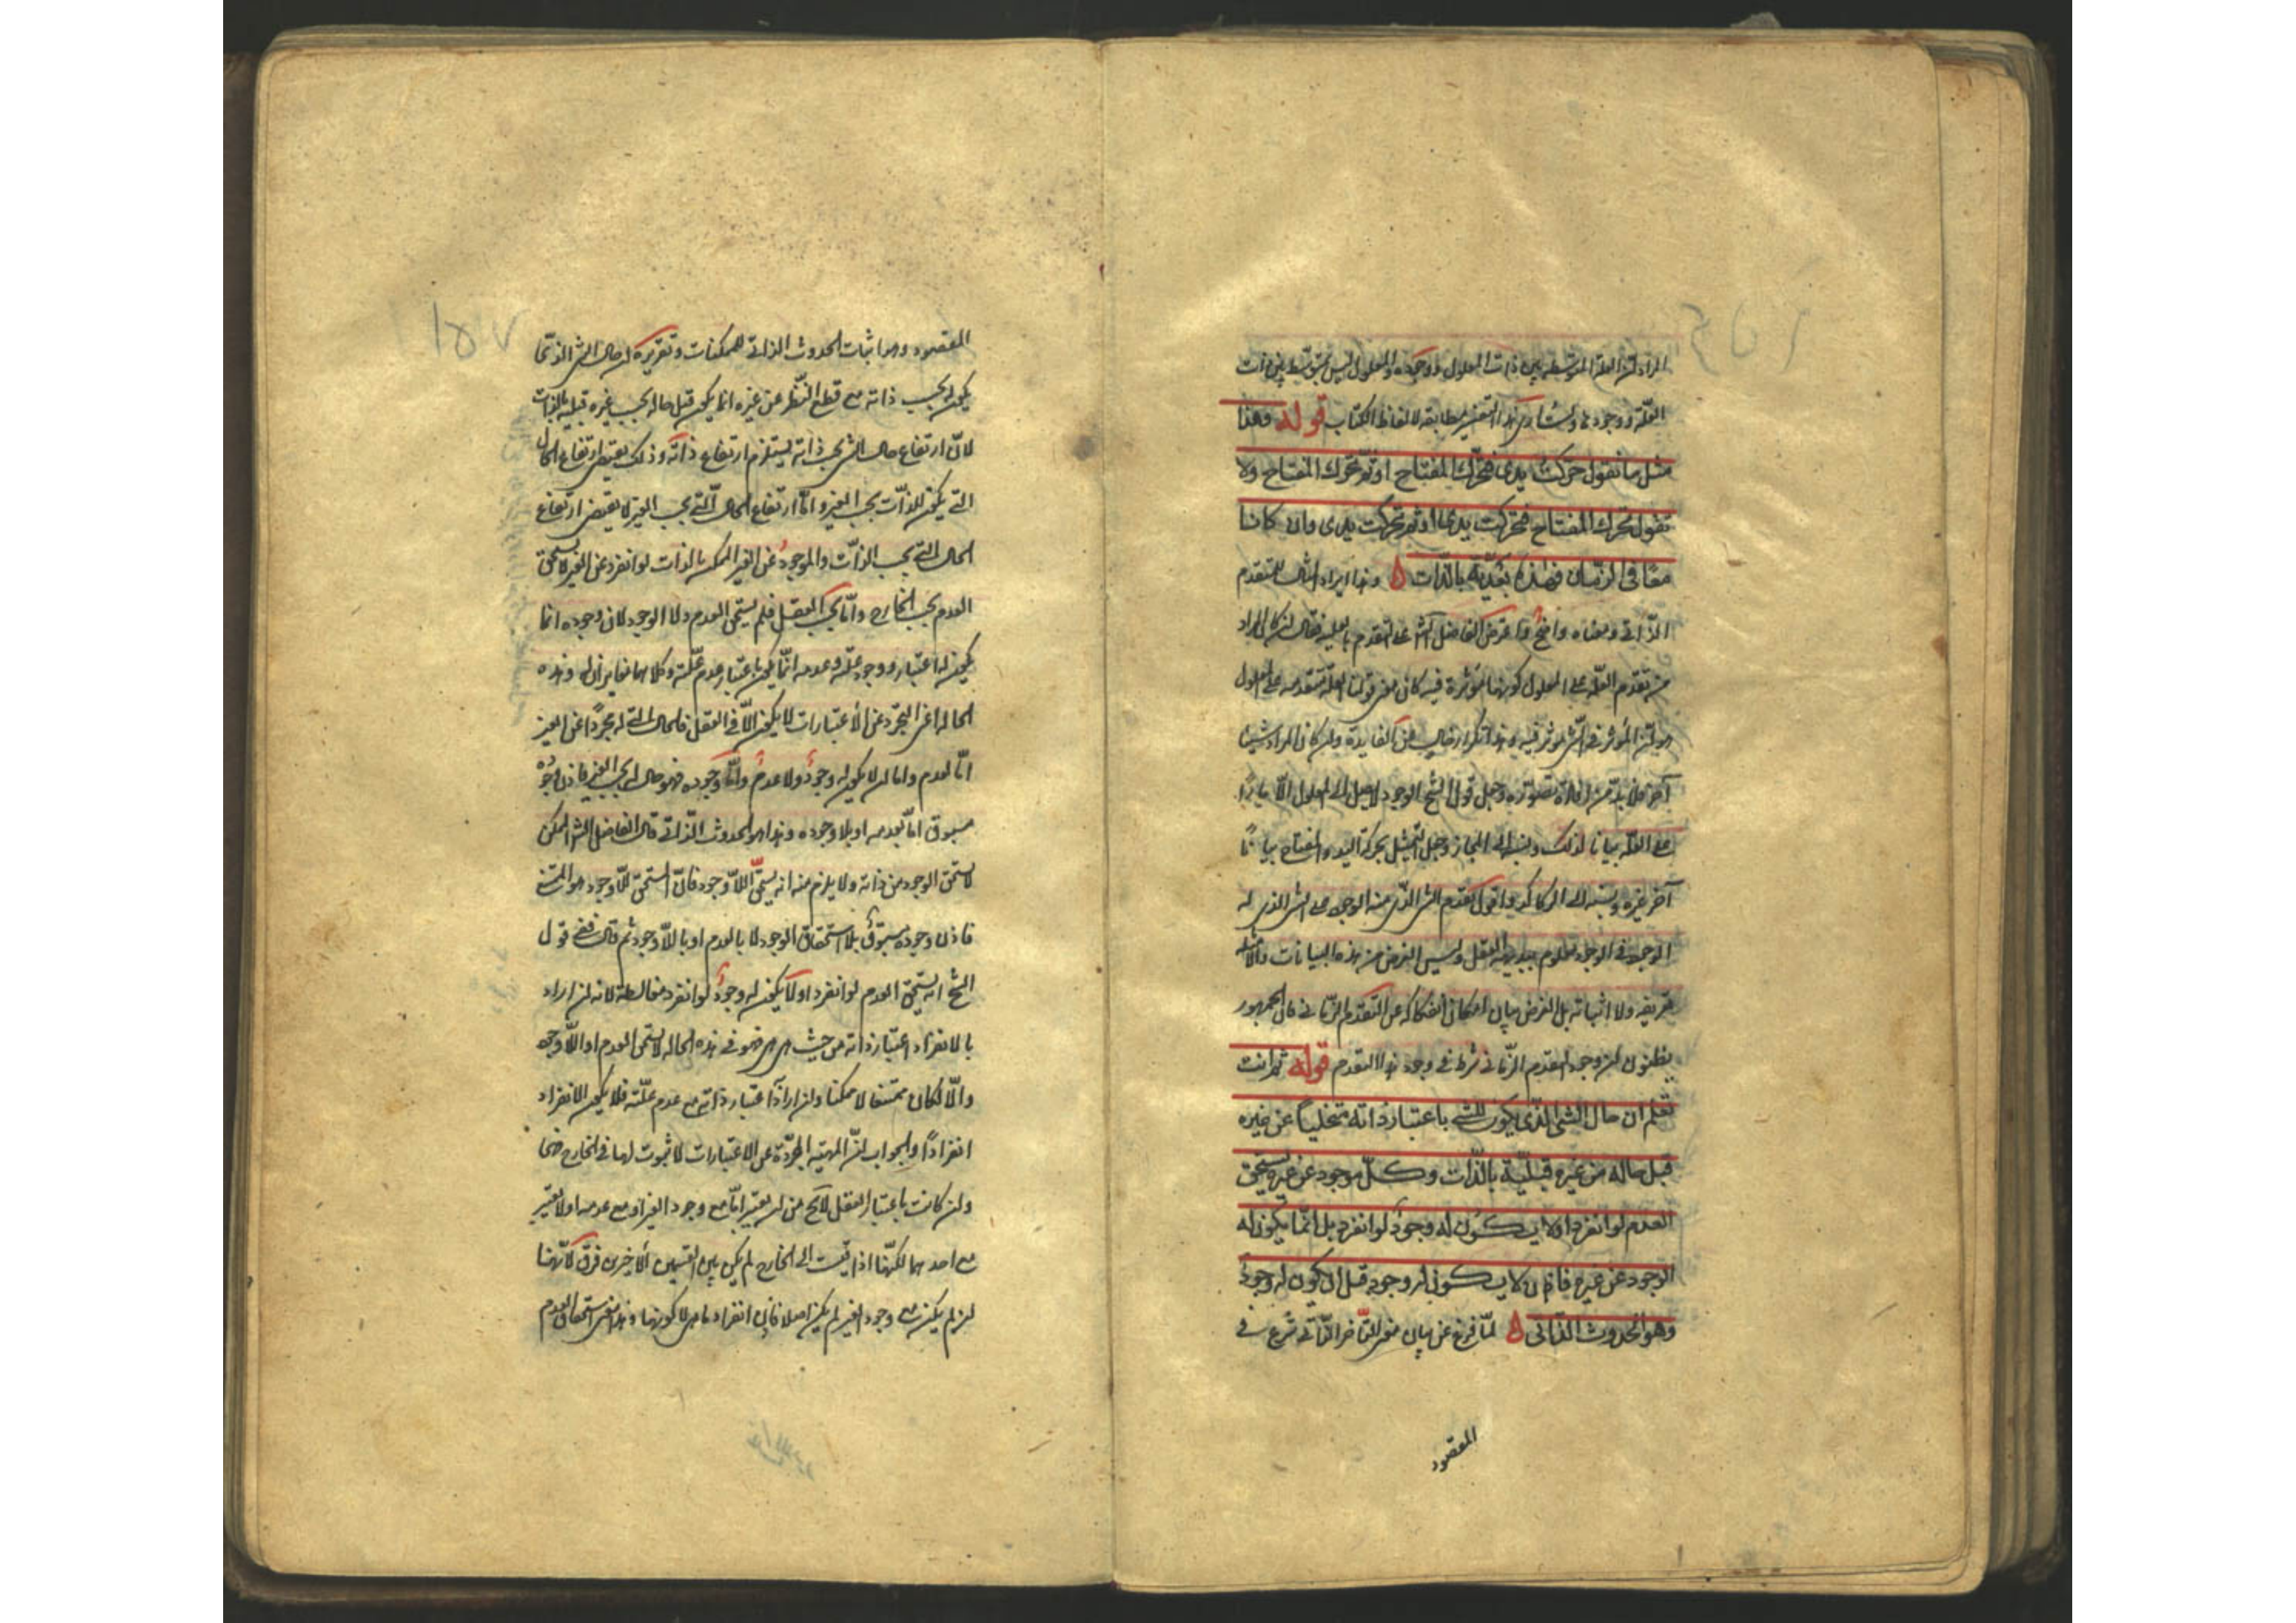 المراد ان العلة المتوسطة بين ذات المعلول ووجوده والمعلول ليس بمتوسط بين ذات
العلة ووجودها هذا التفسير مطابقة لالفاظ الكتاب قوله وهذا
مثل ما نقول حركت يدي فتحرك المفتاح او ثم تحرك المفتاح ولا
تقول تحرك المفتاح فتحركت يدي او ثم تحركت يدي وان كانا
معًا في الزمان فهذه بعديّة بالذات ه وهذا ايراد المثال للتقدم
الذاتي ومعناه واضح واعترض الفاضل الشارح على التقدم بالعلية فقال ان كان المراد
من تقدم العلّة على المعلول كونها مؤثرة فيه كان معنى قولنا العلة متقدمة على المعلول
هو ان المؤثر في الشي مؤثر فيه وهذا تكرار خال عن الفايدة وان كان المراد شيئا
آخر فلا بد من افادة تصوّره وجعل قول الشيخ الوجود لا يصل الى المعلول الّا مارًّا
على العلّة بيانا لذلك ونسبه الى المجاز وجعل التمثيل بحركة اليد والمفتاح بيانًا
آخر غيره ونسبه الى الركاكة واقول تقدم الشي الذي منه الوجود على الشي الذي له
الوجود في الوجود معلوم ببديهة العقل وليس الغرض من هذه البيانات والامثلة
تعريفه ولا اثباته بل الغرض بيان امكان انفكاكه عن التقدم الزماني فان الجمهور
يظنون ان وجود التقدم الزّماني شرط في وجود هذا التقدم قوله ثم انت
تعلم ان حال الشي الذي يكون للشي باعتبار ذاته متخليا عن غيره
قبل حاله من غيره قبليّة بالذات وكلّ موجود عن غيره يستحق
العدم لو انفرد او لا يكون له وجودٌ لو انفرد بل انّما يكون له
الوجود عن غيره فاذن لا يكون له وجود قبل ان يكون له وجود
وهو الحدوث الذاتي ه لمّا فرغ عن بيان معنى التأخر الذاتي شرع في
المقصود
المقصود وهو اثبات الحدوث الذاتي للممكنات وتقريره ان حال الشي الذي
يكون له بحسب ذاته مع قطع النّظر عن غيره انما يكون قبل حاله بحسب غيره قبلية بالذات
لانّ ارتفاع حال الشي بحسب ذاته يستلزم ارتفاع ذاته وذلك يقتضي ارتفاع الحال
التي يكون للذات بحسب الغير وامّا ارتفاع الحال الّتي بحسب الغير لا يقتضي ارتفاع
الحال التي بحسب الذّات والموجود عن الغير الممكن بالذات لو انفرد عن الغير لاستحق
العدم بحسب الخارج وامّا بحسب العقل فلم يستحق العدم ولا الوجود لان وجوده انما
يكون له اعتبار وجود علّته وعدمه انّما يكون باعتبار عدم علّته وكلاهما مغايران له وهذه
الحالة اعني التجرّد عن الاعتبارات لا يكون الّا في العقل فالحال التي له مجردًا عن الغير
امّا لعدم واما ان لا يكون له وجودٌ ولا عدمٌ وامّا وجوده فهو حال له بحسب الغير فاذن وجودُه
مسبوق امّا بعدمه او بلا وجوده وهذا هو الحدوث الذّاتي قال الفاضل الشارح الممكن
لا يستحق الوجود من ذاته ولا يلزم منه انه يستحقّ اللّاوجود فانّ المستحق للّاوجود هو الممتنع
فاذن وجوده مسبوقٌ بلا استحقاق الوجود لا بالعدم او باللّاوجود ثم قال ففي قول
الشيخ انه يستحق العدم لو انفرد او لا يكون له وجودٌ لو انفرد مغالطة لانه ان اراد
بالانفراد اعتبار ذاته من حيث هي هي فهو في هذه الحالة لا يستحق العدم او اللّاوجود
والّا لكان ممتنعا لا ممكنا وان اراد اعتبار ذاته مع عدم علّته فلا يكون الانفراد
انفرادًا والجواب انّ المهيّة المجرّدة عن الاعتبارات لا ثبوت لها في الخارج فهي
وان كانت باعتبار العقل لا يخ من ان يعتبر امّا مع وجود الغير او مع عدمه او لا يعتبر
مع احدهما لكنّها اذا قيست الى الخارج لم يكن بين القسمين الاخيرين فرق لانّها
ان لم يكن مع وجود الغير لم يكن اصلا فاذن انفرادها هو لا كونها وهذا معنى استحقاق العدم